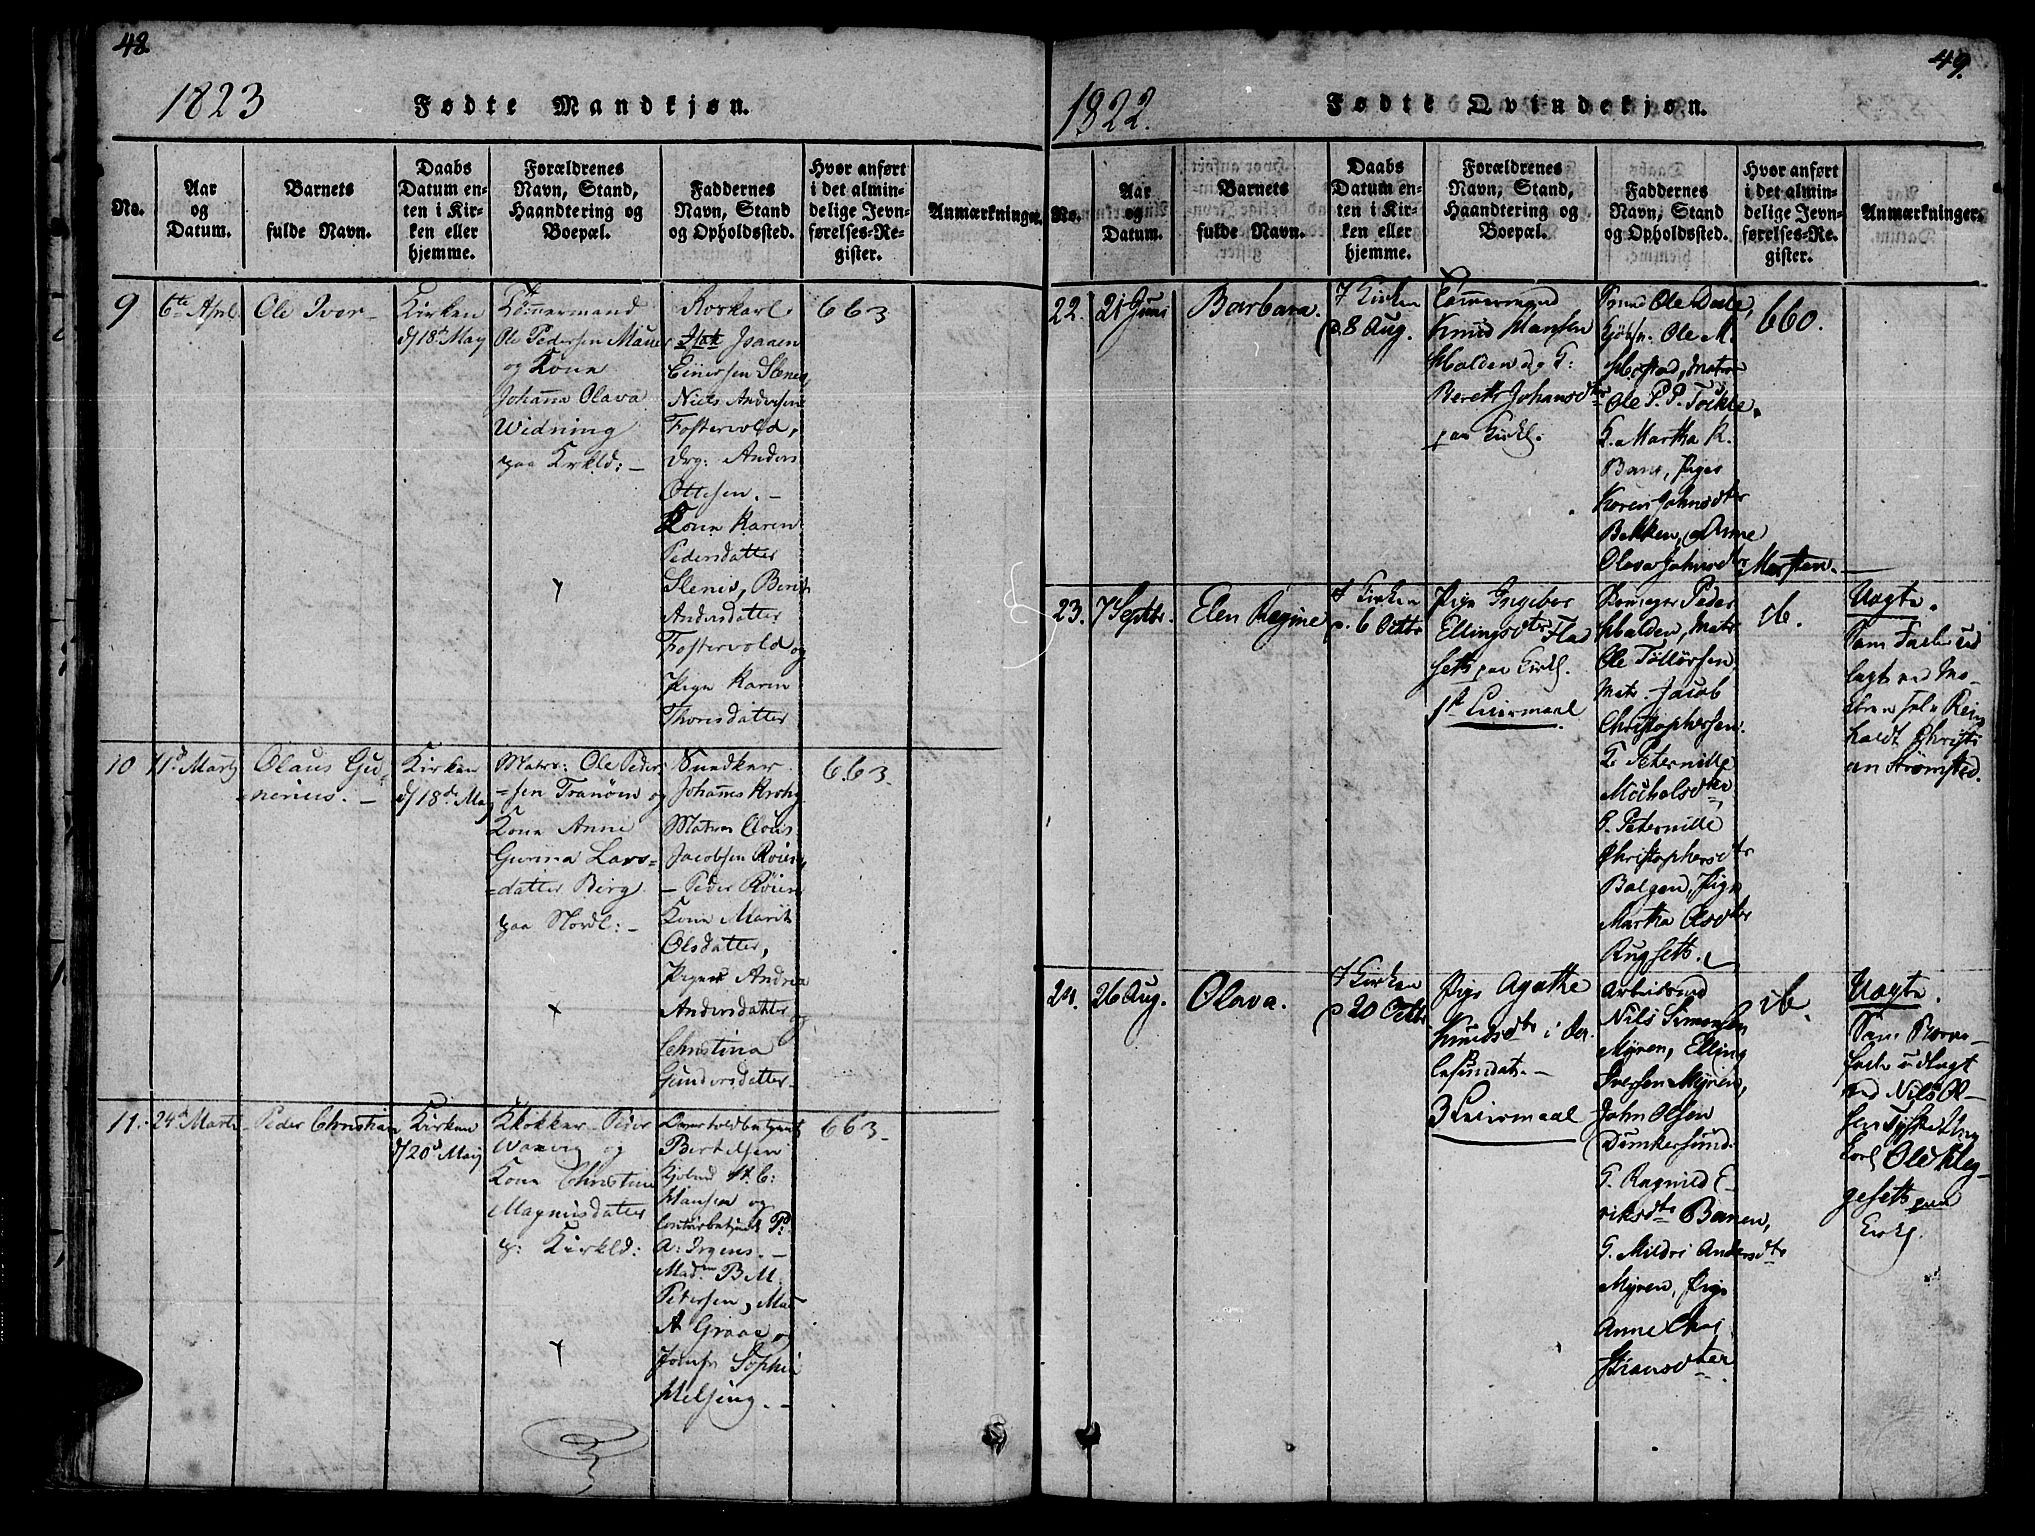 48.
1823
Fødte Mandkjøn.
No.
Aar
og
Datum.
Barnets
fulde Navn.
Daabs
Datum en-
ten i Kir-
ken eller
hjemme.
Forældrenes
Navn, Stand,
Haandtering og
Boepæl.
Faddernes
Navn, Stand
og Opholdssted.
Hvor anført
i det almin-
delige Jevn-
førelses-Re-
gister.
Anmærkninger.
9
6te April
Ole Iver
Kirken
d/18de May
Tømmermand
Ole Pedersen Mauer
og Kone
Johanna Olava
Widning
paa Krkld: -
Isaaen
Einersen Slenes,
Niels Andersen
Fostervold,
Drg: Anders
Ottesen. -
Kone Karen
Pedersdatter
Slenes, Berit
Andersdatter
Fostervold og
Pige Karen
Thoresdatter
663
10
11te Marty
Olaus Gu-
nerius. -
Kirken
d/18de May
Matros: Ole Peder-
sen Tranøen og
Kone Anne
Gurina Lars-
datter Berg
paa Nordl: -
Snedker
Johannes Krohg
Matros Clous
Jacobsen Røien,
- Peder Røien
Kone Marit
Olsdatter,
Piger Andrea
Andersdatter og
Christina
Gundersdatter -
663
11.
24de Marts
Peder Christian
Kirken
d/20de May
Klokker Peder
Waxvig og
Kone Christine
Magnusdatter
p: Kirkld:
Overtoldbetjent
Bertelsen
Kjøbmd H. C:
Hansen og
P:
A: Irgens. -
Madm B M.
Petersen, Mad
A Graae og
Jomfr Sophie
Helsing. -
663 -
49.
1822.
Fødte Qvindekjøn.
No.
Aar
og
Datum.
Barnets
fulde Navn.
Daabs
Datum en-
ten i Kir-
ken eller
hjemme.
Forældrenes
Navn, Stand,
Haandtering og
Boepæl.
Faddernes
Navn, Stand
og Opholdssted.
Hvor anført
i det almin-
delige Jevn-
førelses-Re-
gister.
Anmærkninger.
22.
21 Juni
Barbara.
I Kirken
d. 8 Aug.
Tømmermand
Knud Hansen
Halden og G:
Bereth Johansdtr
paa Kirkl.
Ole Dale,
Ole M.
Ole P. P.
K. Martha R.
Bane, Piger
Karen Johnsdtr
Bakken, og Anne
Olava Johnsdtr Morsten. -
660.
23.
7 Septbr.
Elen Regine
I Kirken
d. 6 Octbr
Pige Ingebor
Ellingsdtr Flad
seth paa Kirkl.
1ste Leiermaal
Peder
Halden, Matr
Ole Tøllørsen
Matr Jacob
Christophersen.
K. Peternille
Michelsdtr,
G. Peternille
Christophersdtr
Bolgen, Pige
Martha Olsdtr
Rugseth.
ib.
Uægte.
Som Fader ud
lagt ved Mo-
deren selv Rein
holdt Christi
an Strømsted.
24.
26 Aug.
Olava.
I Kirken
d 20 Octbr
Pige Agathe
Knudsdtr i Chr.
tiesundet. -
3 Leiermaal
Arbeidsmd
Nils Simonsen
Myren, Elling
Iversen Myren,
John Olsen
Dunkersund.
G. Ragnild E-
riksdtr Banen,
G. Mildri Andersdtr
Myren, Pige
Anne Chri
stiansdter
ib.
Uægte.
Som Barne-
fader udlagt
ved Nils Ol-
sen
Karl Ole Kleg-
geseth paa
Kirkl.